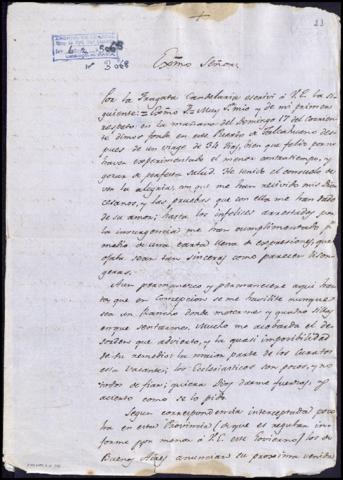 23
Nº 3068
Exmo Señor
Por la Fragata Candelaria escriví á V.E. la si-
guiente: = Exmo Sr Muy Sr mio y de mi primer
respeto: en la mañana del Domingo 17 del Corrien-
te dimos fondo en este Puerto de Talcahueno des-
pues de un viage de 34 dias, bien que feliz por no
haver experimentado el menor contratiempo, y
gozar de perfecta salud. He tenido el consuelo de
ver la alegria, con que me han recivido mis Dio-
cesanos, y las pruebas que con ella me han dado
de su amor; hasta los infelices arrestados por
la insurgencia me han cumplimentado p.r
medio de una carta llena de expresiones, que
ojala sean tan sinceras como parecen lison-
geras.
Aun permanezco y permaneceré aqui has-
ta que en Concepcion se me havilite aunque
sea un Rancho donde meterme y quatro sillas
en que sentarme. Mucho me acobarda el de-
sorden que advierto, y la quasi imposibilidad
de su remedio: la maior parte de los Curatos
esta vacante; los Eclesiasticos son pocos, y no
todos de fiar; quiera Dios darme fuerzas y
acierto como se lo pido.
Segun correspondencia interceptada poco
ha en esta Provincia (de que es regular in-
forme por menor á V.E. este Govierno) los de
Buenos Ayres anuncian su proxima venida